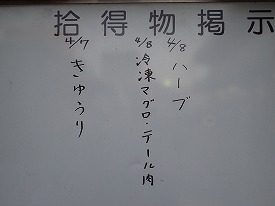 拾得物掲示
4/8 ハーブ
4/8 冷凍マグロ・テール肉
4/7 きゅうり